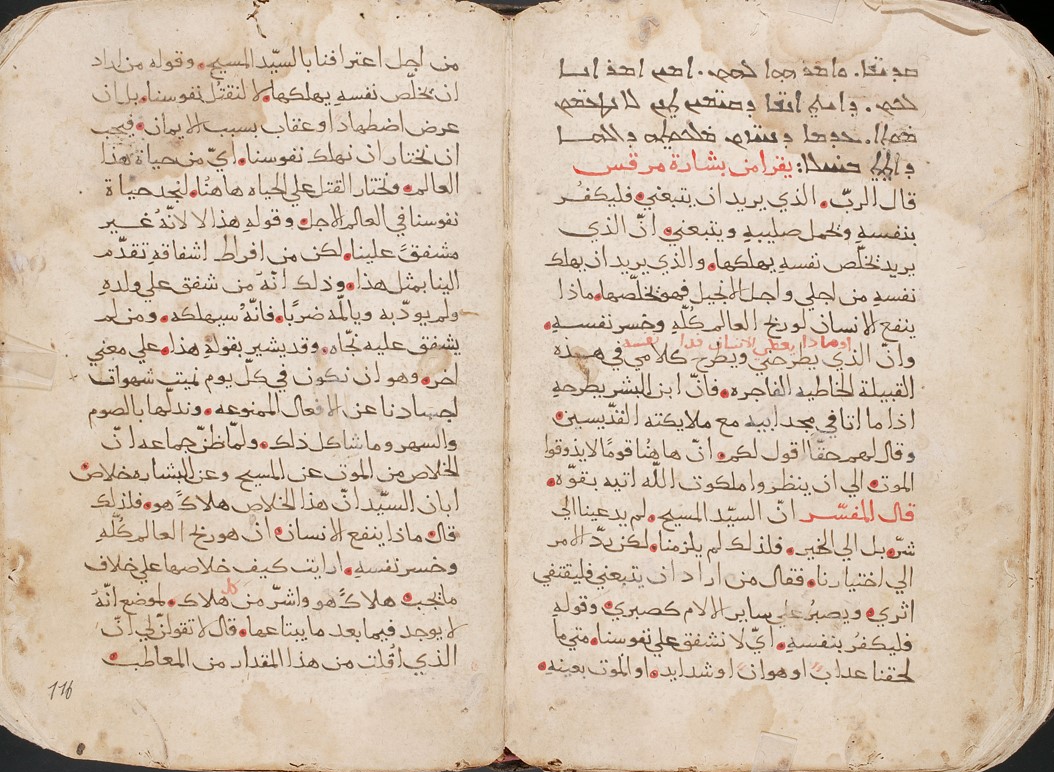 ܩܕܝܫܐ. ܘܐܡܪ ܗܘܐ ܠܗܘܢ. ܐܡܝܢ ܐܡܪ ܐܢܐ
ܠܟܘܢ. ܕܐܝܬ ܐܢܫܐ ܕܩܝܡܝܢ ܬܢܢ ܠܐ ܢܛܥܡܘܢ
ܡܘܬܐ. ܥܕܡܐ ܕܢܚܙܘܢ ܡܠܟܘܬܗ ܕܐܠܗܐ
ܕܐܬܬ ܒܚܝܠܐ: يقرا من بشارة مرقس
قال الربّ. الذي يريد ان يتبعني فليكفُر
بنفسهِ ويحمل صليبهِ ويتبعني. انّ الذي
يريد يخلّص نفسهِ يهلكها. والذي يريد ان يهلك
نفسهِ من اجلي واجل الانجيل فهو يخلّصها. ماذا
ينفع الانسان لو ربح العالم كُلّهِ وخسر نفسهِ.
او ماذا يعطي الانسان فدا نفسه
وانّ الذي يطرحني ويطرح كلامي في هذه
القبيلة الخاطيه الفاجره. فانّ ابن البشر يطرحهِ
اذا ما اتا في مجد ابيه مع ملايكته القدّيسين
وقال لهم حقّا اقول لكم. انّ هاهُنا قومًا لا يذوقوا
الموت. الي ان ينظروا ملكوت اللّه اتيه بقوّه.
قال المفسّر انّ السيّد المسيح. لم يدعينا الي
شرّ. بل الي الخير. فلذلك لم يلزمنا. لكن ردّ الامر
الي اختيارنا. فقال من اراد ان يتبعني فليقتفي
اثري. ويصبرُ علي ساير الالام كصبري. وقولهِ
فليكفرُ بنفسهِ. ايّ لا نشفق علي نفوسنا. متي ما
لحقنا عدابً او هوانً او شدايد. او الموت بعينهِ.
من اجل اعترافنا بالسيّد المسيح. وقوله من اراد
ان يخلّص نفسهِ يهلكها. لا لنقتُل نفوسنا. بل ان
عرض اضطهاد او عقاب بسبب الايمان. فيجب
ان نختار ان نهلك نفوسنا. ايّ من حياة هذا
العالم. ونختار القتل علي الحياه هاهُنا. لنجد حياة
نفوسنا في العالم الاجل. وقولهِ هذا لا لانّهُ غير
مشفقً علينا. لكن من افراط اشفاقهِ تقدّم
الينا بمثل هذا. وذلك انّهُ من شفق علي ولدهِ
ولم يودّبه ويالّمه ضربًا. فانّهُ سيهلكه. ومن لم
يشفق عليه نجّاه. وقد يشير بقولهِ هذا. علي معني
اخر. وهو ان نكون في كلّ يوم نميت شهوات
اجسادنا عن الافعال الممنوعه. ونذلّها بالصوم
والسهر وما شاكل ذلك. ولمّا ظنّ جماعه انّ
الخلاص من الموت عن المسيح وعن البشاره خلاص
ابان السيّد انّ هذا الخلاص هلاكً هو. فلذلك
قال. ماذا ينفع الانسان. ان هو ربح العالم كُلّهِ
وخسر نفسهِ. ارايت كيف خلاصها علي خلاف
ما يجب. هلاكً هو واشرّ من كل هلاك. لموضع انّهُ
لا يوجد فيما بعد ما يبتاعها. قال لا تقولنّ لي انّ
الذي افُلت من هذا المقدار من المعاطب.
116